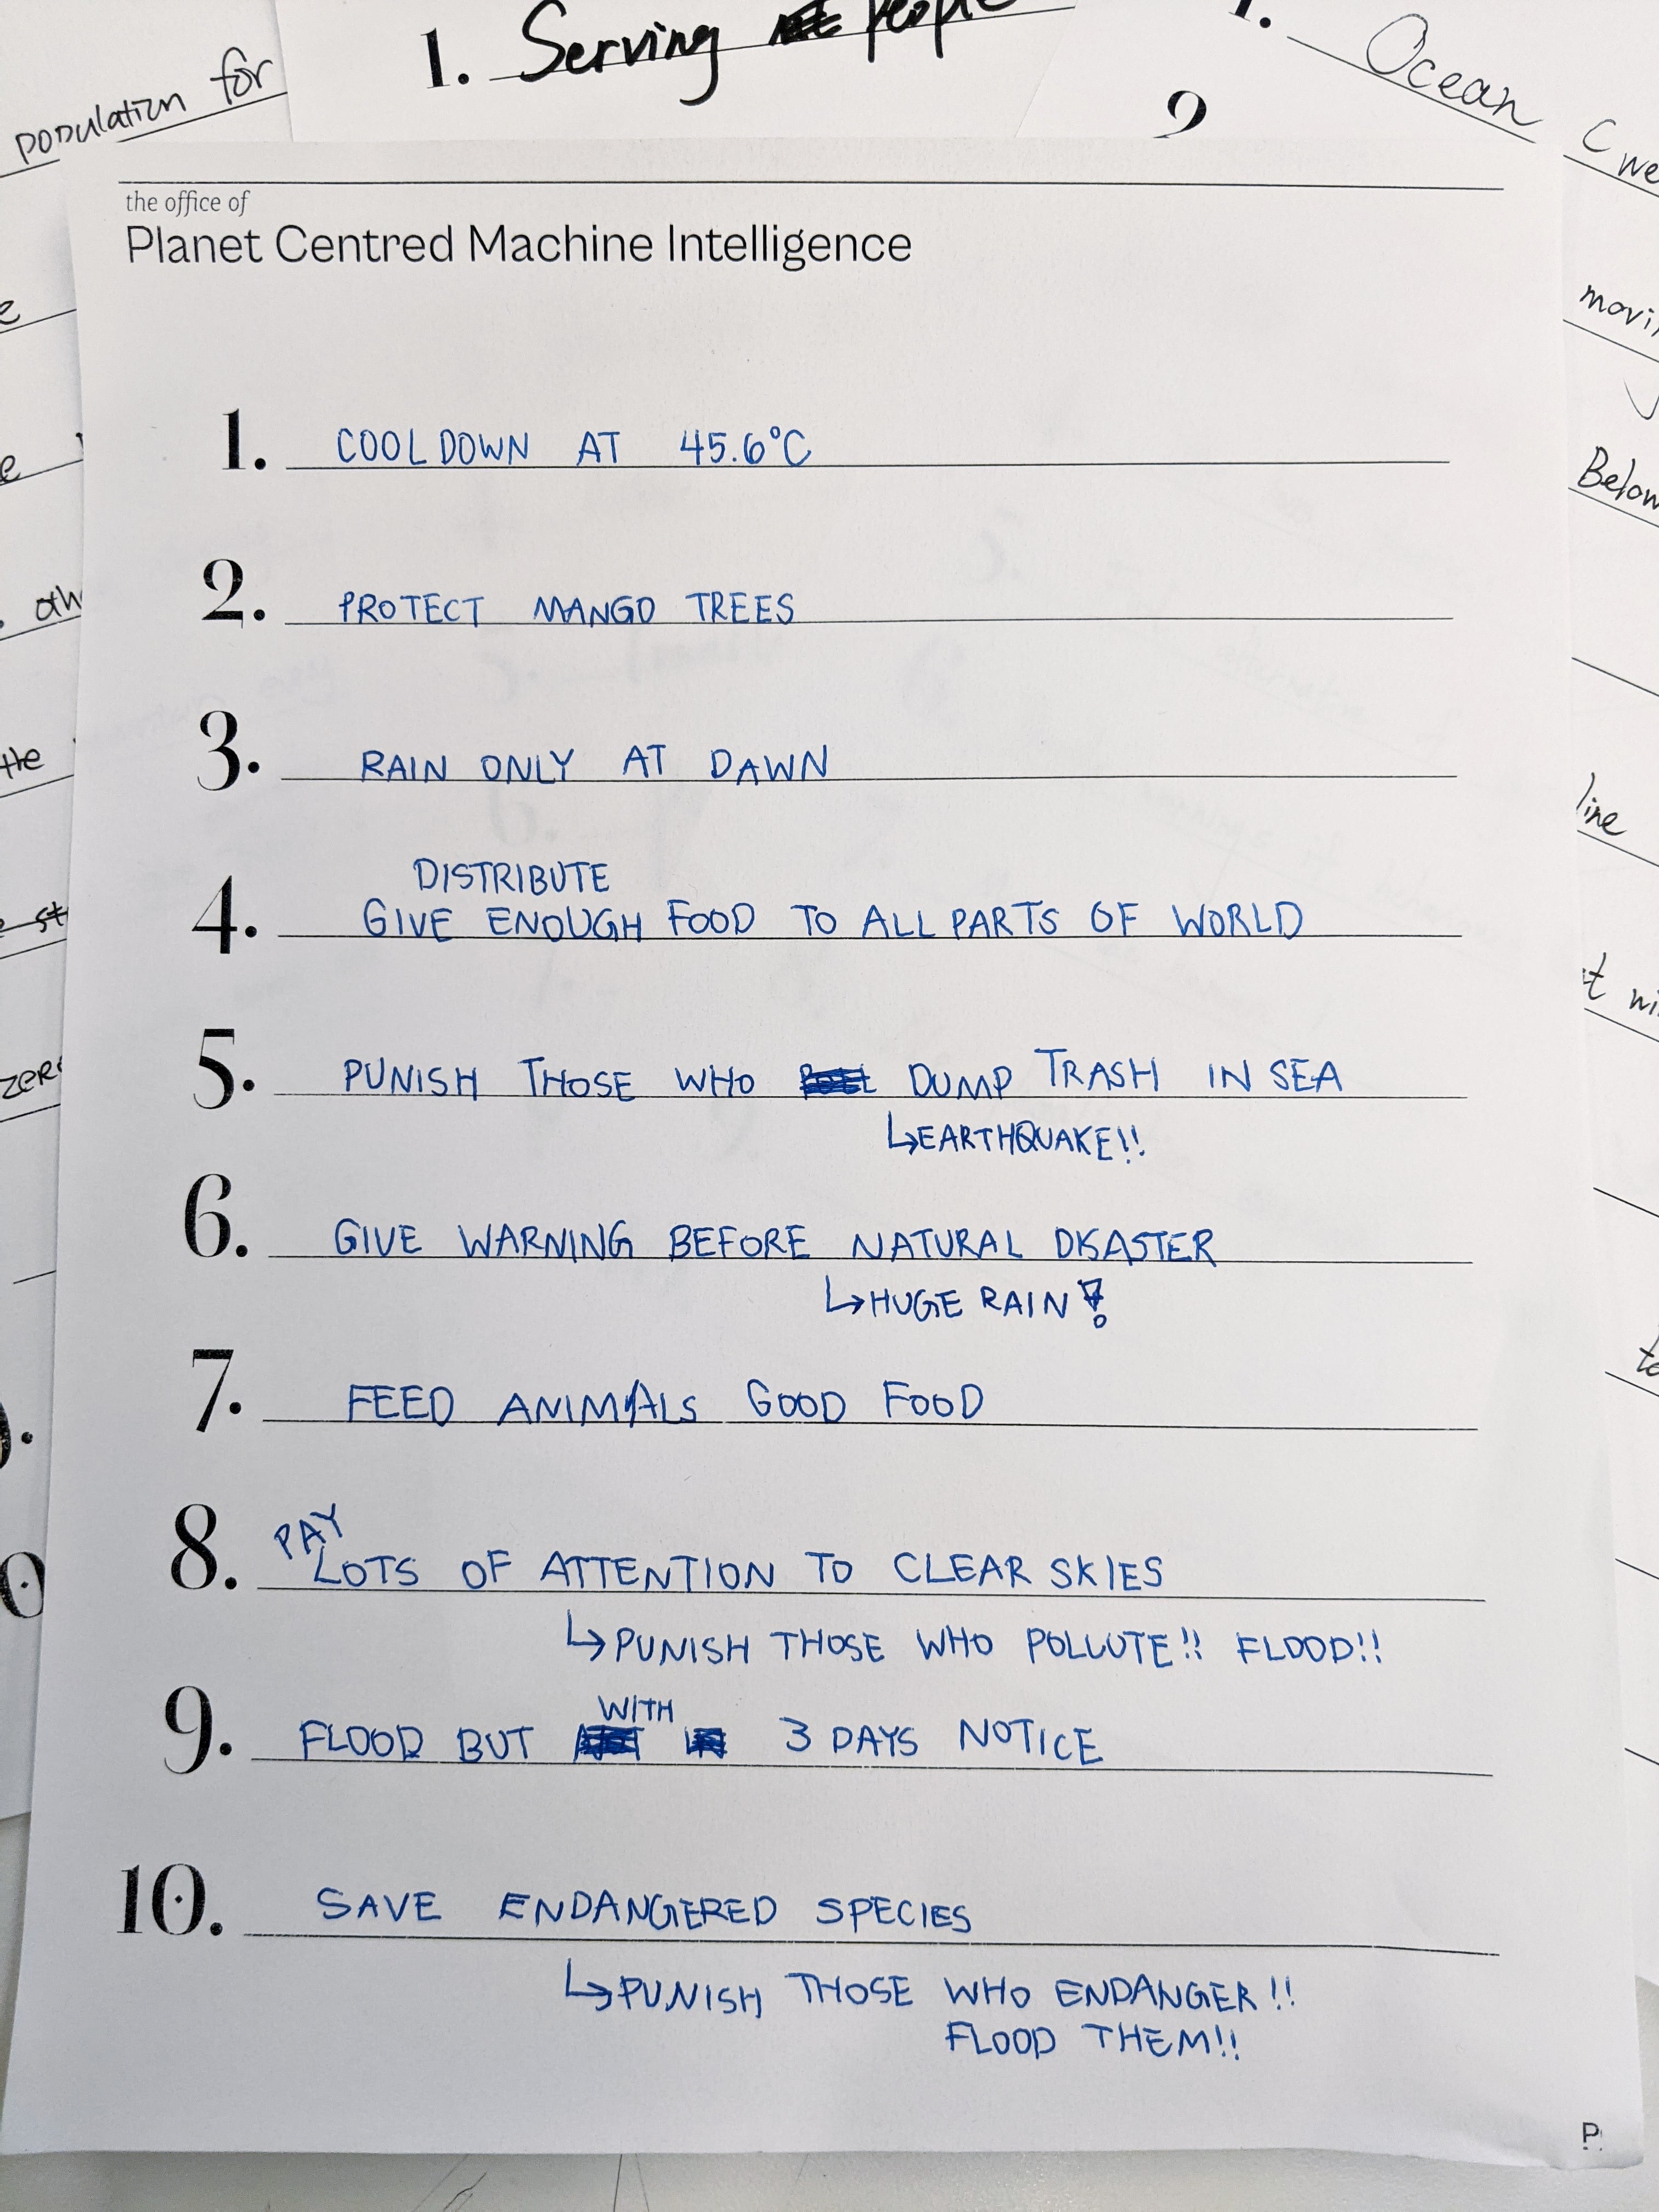 population for
1. Serving people
1. Ocean
2
C we
the office of
Planet Centred Machine Intelligence
movi
Below
line
t wi
zero
1. COOL DOWN AT 45.6°C
2. PROTECT MANGO TREES
3. RAIN ONLY AT DAWN
DISTRIBUTE
4. GIVE ENOUGH FOOD TO ALL PARTS OF WORLD
5. PUNISH THOSE WHO DUMP TRASH IN SEA
↳EARTHQUAKE!!
6. GIVE WARNING BEFORE NATURAL DISASTER
↳HUGE RAIN!
7. FEED ANIMALS GOOD FOOD
PAY
8. LOTS OF ATTENTION TO CLEAR SKIES
↳PUNISH THOSE WHO POLLUTE!! FLOOD!!
WITH
9. FLOOD BUT 3 DAYS NOTICE
10. SAVE ENDANGERED SPECIES
↳PUNISH THOSE WHO ENDANGER!!
FLOOD THEM!!
P